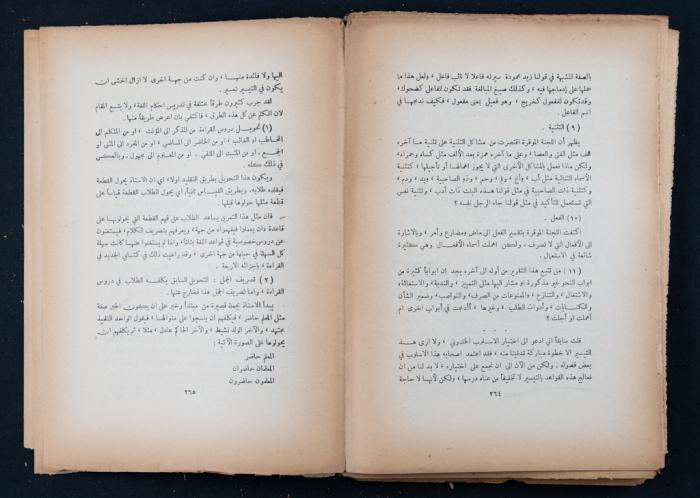 بالصفة المشبهة في قولنا زيد محمودة سيرته فاعلا لا نائب فاعل ، ولعل هذا ما
حملها على إدماجها فيه ، وكذلك صيغ المبالغة فقد تكون للفاعل كضحوك،
وقد تكون للمفعول كخريج ، وهو فعيل بمعنى مفعول ، فكيف ندمجها في
اسم الفاعل .
( ٩ ) التثنية .
يظهر أن اللجنة الموقرة اقتصرت من مشاكل التثنية على تثنية ما آخره
الف مثل فتى والعصا ، وعلى ما آخره همزة بعد الألف مثل كساء وحمراء،
ولكن ماذا نفعل بالمشاكل الأخرى التي لا يجوز اهمالها أو تأجيلها ، كتثنية
الأسماء الثنائية مثل أب ، وأخ ، وحم ، وذو الصاحبية ، ويد ، ودم ،
وكتثنية ذات الصاحبية في مثل قولنا هذه البنت ذات أدب ، وتثنية نفس
التي تستعمل للتأكيد في مثل قولنا جاء الرجل نفسه ؟
( ١٠ ) الفعل .
اكتفت اللجنة الموقرة بتقسيم الفعل الى ماض ومضارع وأمر ، وبالاشارة
الى الأفعال التي لا تصرف ، ولكن اهملت أسماء الأفعال وهي كثيرة
شائعة في الاستعمال .
( ١١ ) من تتبع هذا التقرير من أوله الى آخره يجد ان ابواباً كثيرة من
ابواب النحو غير مذكورة او مشار اليها مثل التمييز ، والندبة ، والاستغاثة،
والاشتغال ، والتنازع ، والممنوعات من الصرف ، والنواصب ، وضمير الشأن
والكنايات ، وأدوات الطلب ، وغيرها ، أأدمجت في أبواب اخرى ام
أهملت او أجلت ؟
. . .
قلت سابقاً اني ادعو الى اختيار الاسلوب الخلدوني ، ولا ارى هذا
التيسير الا خطوة مباركة تدنينا منه ، فقد اعتمد اصحابه هذا الاسلوب في
بعض فصوله ، ولكن من الآن الى ان نجمع على اختياره ، لا بد لنا من ان
نعالج هذه القواعد بالتيسير لا تخفيفاً من عناء درسها ، ولكن لأنها لا حاجة
٢٦٤
اليها ولا فائدة منها ، وان كنت من جهة اخرى لا ازال اخشى ان
يكون في التيسير تعسير .
لقد جرب كثيرون طرقاً مختلفة في تدريس احكام اللغة ، ولا يتسع المقام
لان اتكلم عن كل هذه الطرق ، فاكتفي بان اعرض طريقاً منها .
( ١ ) تحويل دروس القراءة من المذكر الى المؤنث ، او من المتكلم الى
المخاطب او الغائب، أو من الحاضر الى الماضي ، او من المفرد الى المثنى او
الجمع ، او من المثبت الى المنفي ، او من المعلوم الى مجهول ، وبالعكس
في ذلك كله .
ويكون هذا التحويل بطريق التقليد اولا ، اي ان الاستاذ يحول القطعة
فيقلده طلابه ، وبطريق القياس ثانياً، اي يحول الطلاب القطعة قياساً على
قطعة مثلها حولوها قبلها .
فان مثل هذا التمرين يساعد الطلاب على فهم القطعة التي يحولونها على
قاعدة دان يعملوا فيفهموا، من جهة ، ويعرفهم بتصريف الكلام ، فيستغنون
عن دروس خصوصية في قواعد اللغة بتاتاً ، واذا لم يستغنوا عنها كانت سهلة
كل السهولة في حينها من جهة اخرى ، وقد راعيت ذلك في كتابي الجديد في
القراءة ، بأجزائه الاربعة .
( ٢ ) تصريف الجمل : التحويل السابق يكلفه الطلاب في دروس
القراءة ، واما تصريف الجمل هذا فخارج عنها.
يبدأ الاستاذ بجملة قصيرة من مبتدأ وخبر على ان يكون الخبر صفة
مثل المعلم حاضر ، فيكلفهم ان ينسجوا على منوالها ، فيقول الواحد التلميذ
مجتهد ، والآخر الولد نشيط ، والآخر الحاكم عادل ، مثلا ، ثم يكلفهم ان
يحولوها على الصورة الآتية :
المعلم حاضر
المعلمان حاضران
المعلمون حاضرون
٢٦٥